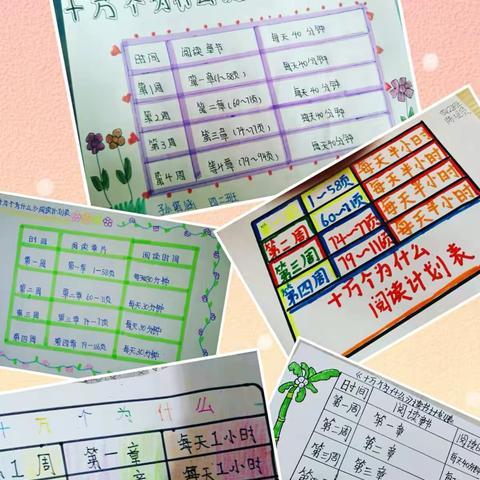 十万个为什么
时间 阅读章节 每天40分钟
第1周 第一章(1~58页) 每天40分钟
第2周 第二章(60~71页) 每天40分钟
第3周 第三章(74~77页) 每天40分钟
第4周 第4章(79~99页) 每天40分钟
四二班
1~58页 每天半小时
第二周 60~71页 每天半小时
第三周 74~77页 每天半小时
第四周 79~118页 每天半小时
十万个为什么
阅读计划表
十万个为什么阅读计划表
时间 阅读章片 阅读时间
第一周 第一章 1~58页 每天30分钟
第二周 第二章 60~71页 每天30分钟
第三周 第三章 74~77页 每天30分钟
第四周 第四章 79~118页 每天30分钟
十万个为什么
1周 第一章 每天1小时
章 每天1小时
《十万个为什么》读书计划表
时间 阅读章节 阅读
第一周 第一章 每天40分钟
第二周 第二章
第三周 第三章